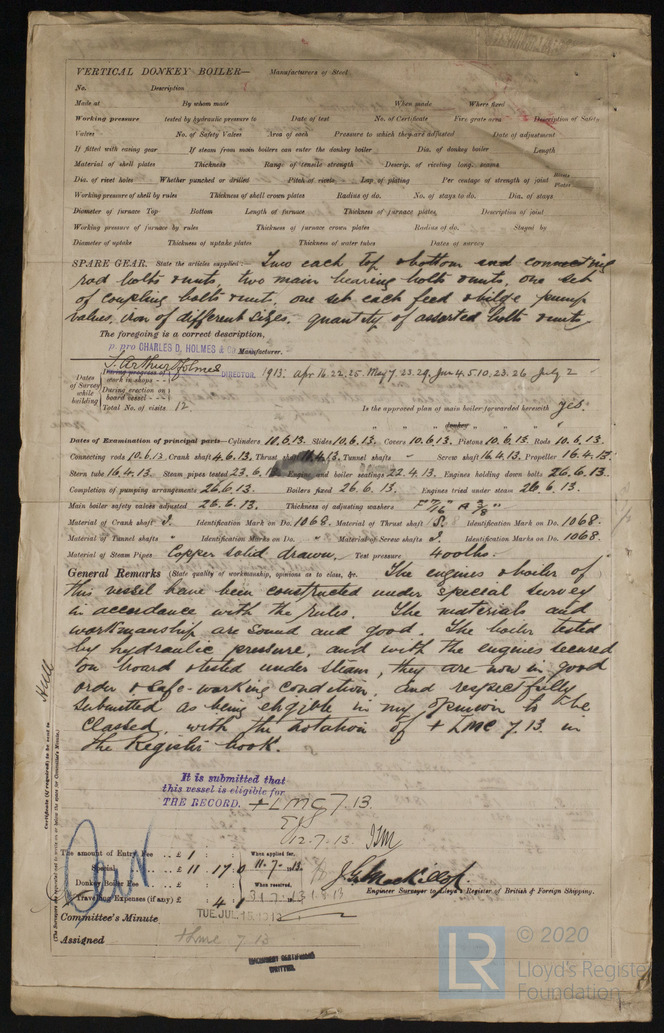 VERTICAL DONKEY BOILER— Manufacturers of Steel.
No. Description
Made at By whom made When made Where fixed
Working pressure tested by hydraulic pressure to Date of test No. of Certificate Fire grate area Description of Safety
Valves No. of Safety Valves Area of each Pressure to which they are adjusted Date of adjustment
If fitted with easing gear If steam from main boilers can enter the donkey boiler Dia. of donkey boiler Length
Material of shell plates Thickness Range of tensile strength Descrip. of riveting long. seams
Dia. of rivet holes Whether punched or drilled Pitch of rivets Lap of plating Per centage of strength of joint Rivets Plates
Working pressure of shell by rules Thickness of shell crown plates Radius of do. No. of stays to do. Dia. of stays
Diameter of furnace Top Bottom Length of furnace Thickness of furnace plates Description of joint
Working pressure of furnace by rules Thickness of furnace crown plates Radius of do. Stayed by
Diameter of uptake Thickness of uptake plates Thickness of water tubes Dates of survey
SPARE GEAR. State the articles supplied:— Two each top & bottom end connecting
rod bolts & nuts, two main bearing bolts & nuts, one set
of coupling bolts & nuts, one set each feed & bilge pump
valves, iron of different sizes. quantity of assorted bolts & nuts
The foregoing is a correct description,
p. pro CHARLES D. HOLMES & Co Manufacturer.
T. Arthur Holmes DIRECTOR.
Dates of Survey while building
During progress of work in shops - - 1913: Apr 16.22.25. May 7.23.29. Jun 4.5.10.23.26 July 2
During erection on board vessel - - -
Total No. of visits 12. Is the approved plan of main boiler forwarded herewith yes.
" " " donkey " " "
Dates of Examination of principal parts—Cylinders 10.6.13. Slides 10.6.13. Covers 10.6.13. Pistons 10.6.13. Rods 10.6.13.
Connecting rods 10.6.13. Crank shaft 4.6.13. Thrust shaft 16.4.13. Tunnel shafts " Screw shaft 16.4.13. Propeller 16.4.13.
Stern tube 16.4.13. Steam pipes tested 23.6.13 Engine and boiler seatings 22.4.13. Engines holding down bolts 26.6.13.
Completion of pumping arrangements 26.6.13. Boilers fixed 26.6.13. Engines tried under steam 26.6.13.
Main boiler safety valves adjusted 26.6.13. Thickness of adjusting washers
Material of Crank shaft I. Identification Mark on Do. 1068. Material of Thrust shaft S. Identification Mark on Do. 1068.
Material of Tunnel shafts " Identification Marks on Do. " Material of Screw shafts I. Identification Marks on Do. 1068.
Material of Steam Pipes Copper solid drawn. Test pressure 400lbs.
General Remarks (State quality of workmanship, opinions as to class, &c. The engines & boiler of
this vessel have been constructed under special survey
in accordance with the rules. The materials and
workmanship are sound and good. The boiler tested
by hydraulic pressure, and with the engines secured
on board & tested under steam, they are now in good
order & safe working condition, and respectfully
submitted as being eligible in my opinion to be
classed, with the notation of + LMC 7.13. in
the Register book.
Hull
Certificate (if required) to be sent to
(The Surveyors are requested not to write on or below the space for Committee's Minute.)
It is submitted that
this vessel is eligible for
THE RECORD. + LMC 7.13.
12.7.13.
The amount of Entry Fee . . £ 1 When applied for,
Special . . . £ 11 . 17 : 0 11.7.13.
Donkey Boiler Fee . . . £ When received,
Travelling Expenses (if any) £ 4 31.7.13 1.8.13
Engineer Surveyor to Lloyd's Register of British & Foreign Shipping.
Committee's Minute TUE. JUL. 15. 1913
Assigned + LMC 7.13
MACHINERY CERTIFICATE
WRITTEN.
LR © 2020
Lloyd's Register
Foundation